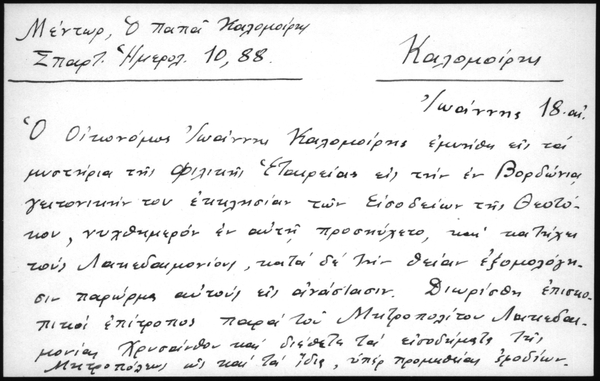 Μέντωρ, Ὁ παπᾶ Καλομοίρης
Σπαρτ. Ἡμερολ. 10, 88.
Καλομοίρης
Ἰωάννης 18-αἰ.
Ὁ Οἰκονόμος Ἰωάννης Καλομοίρης ἐμυήθη εἰς τά
μυστήρια τῆς Φιλικῆς Ἑταιρείας εἰς τήν ἐν Βορδώνια,
γειτονικήν του ἐκκλησίαν τῶν Εἰσοδείων τῆς Θεοτό-
κου, νυχθημερόν ἐν αὐτῇ προσηύχετο, καί κατήχει
τούς Λακεδαιμονίους, κατά δέ τήν θείαν ἐξομολόγη-
σιν παρώρμα αὐτούς εἰς ἀνάστασιν. Διωρίσθη ἐπισκο-
πικός ἐπίτροπος παρά τοῦ Μητροπολίτου Λακεδαι-
μονίας Χρυσάνθου καί διέθετε τά εἰσοδήματα τῆς
Μητροπόλεως ὡς καί τά ἴδια, ὑπέρ προμηθείας ἐφοδίων.